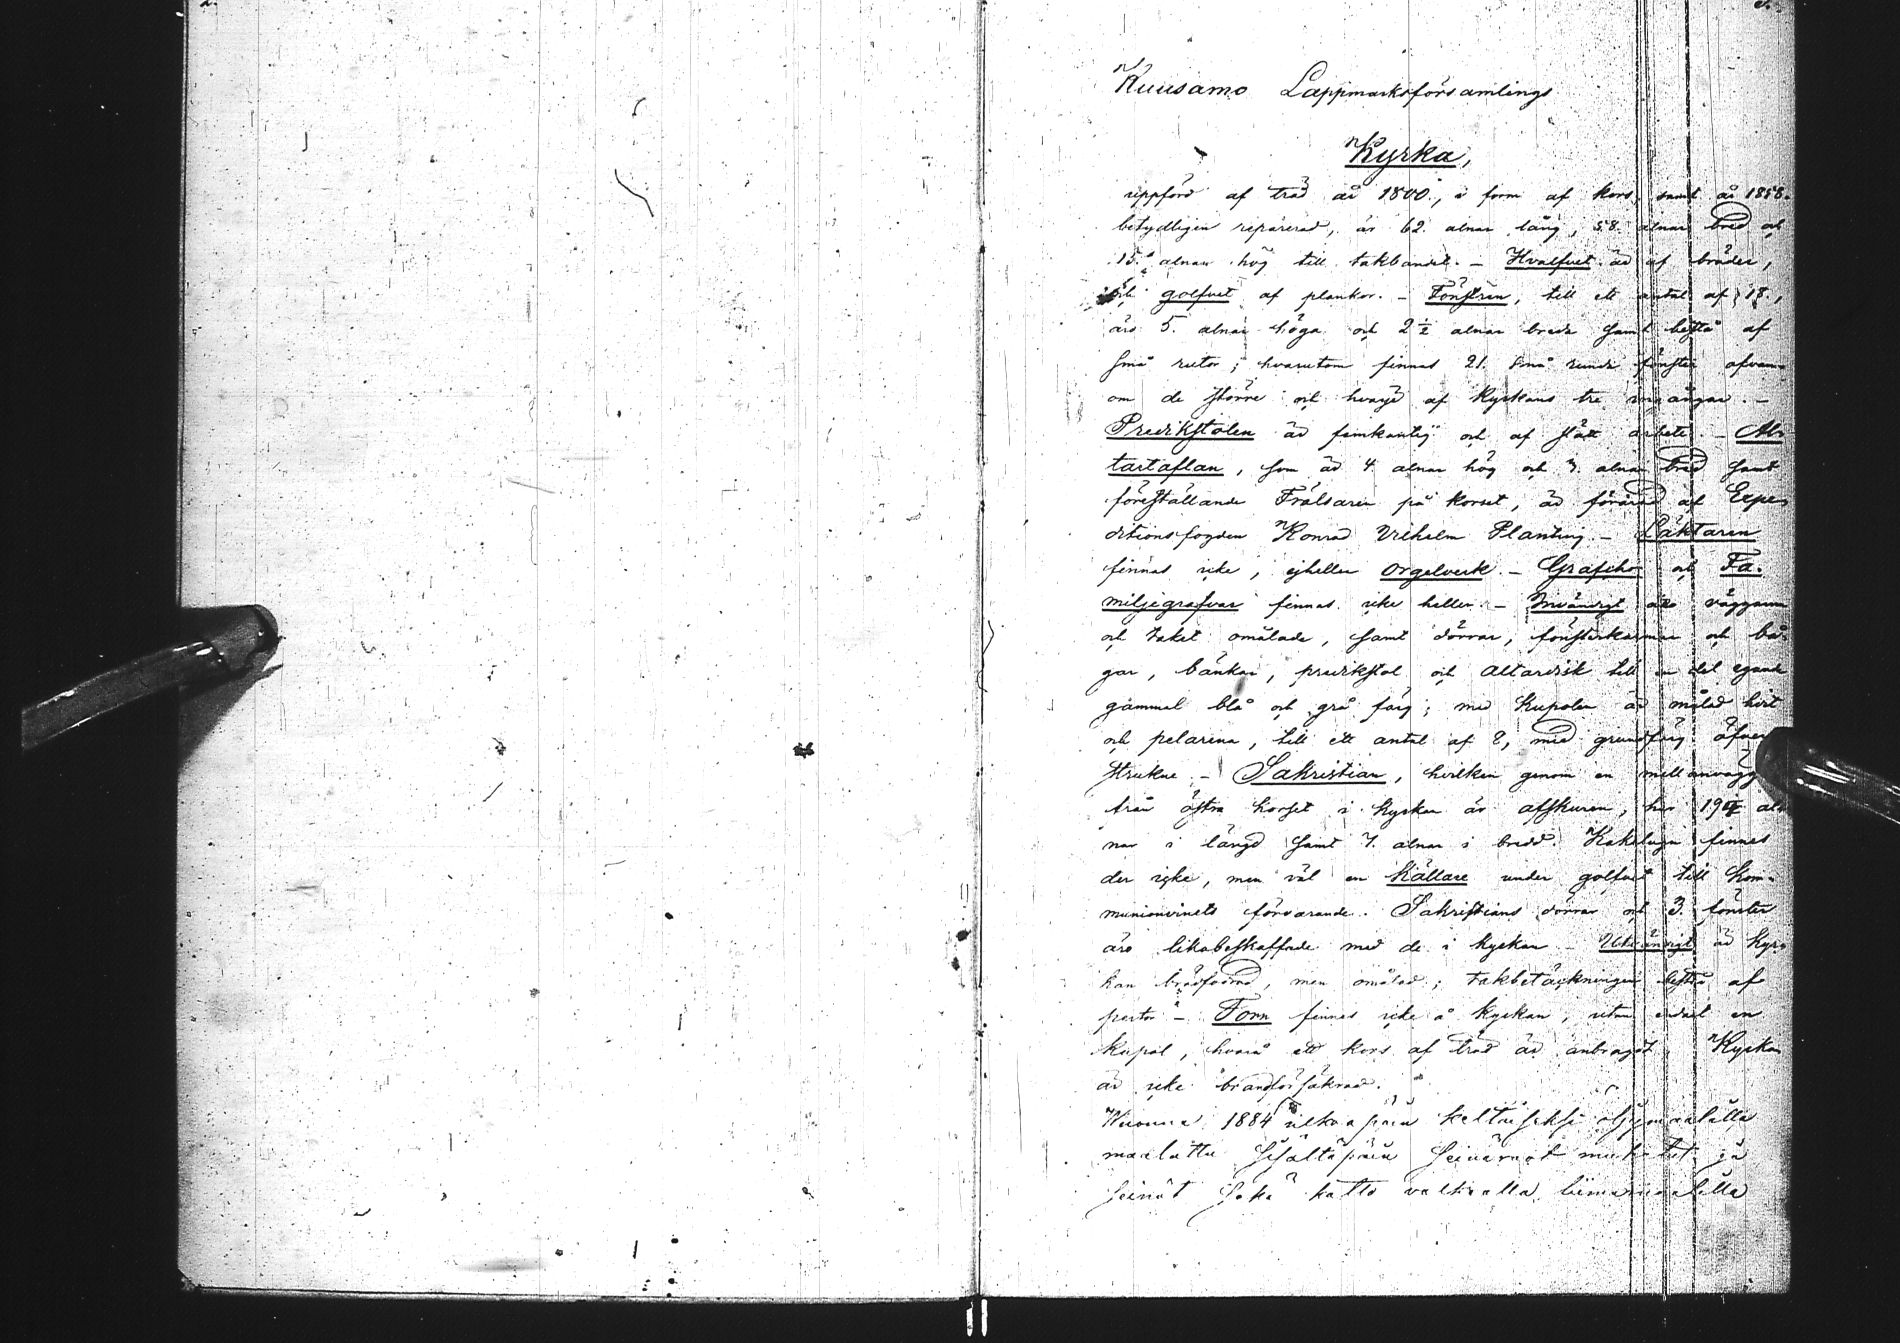 2.
3.
Kuusamo Lappmarksförsamlings
Kyrka,
uppförd af träd år 1800., i form af kors, samt år 1858.
betydligen reparerad, är 62. alnar lång, 58. alnar bred och
15. alnar hög till takbandet. – Hvalfvet är af bräder,
och golfvet af plankor. – Fönstren, till ett antal af 18.,
äro 5. alnar höga och 2½ alnar breda samt bestå af
små rutor; hvarutom finnas 21. små runda fönster ofvan-
om de större och hvarje af kyrkans tre ingångar. –
Predikstolen är femkantig och af slätt arbete. – Al-
tartaflan, som är 4 alnar hög och 3. alnar bred samt
föreställande Frälsaren på korset, är förärad af Expe-
ditionsfogden Konrad Vilhelm Planting. – Läktaren
finnas icke, ejheller orgelverk. – Grafchor och Fa-
miljegrafvar finnas icke heller. – Invändigt äro väggarna
och taket omålade, samt dörrar, fönsterkarmar och bå-
gar, bänkar, predikstol och altardisk till en del egande
gammal blå och grå färg; med Kupolen är målad hvit
och pelarena, till ett antal af 8, med grundfärg öfver-
strukne. – Sakristian, hvilken genom en mellanvägg
från östra korset i kyrkan är afskuren, har 19 al-
nar i längd samt 7. alnar i bredd. Kakelugn finnes
der icke, men väl en Källare under golfvet till Kom-
munionvinets förvarande. Sakristians dörrar och 3. fönster
äro likabeskaffade med de i kyrkan – Utvändigt är Kyr-
kan brädfodrad, men omålad; takbetäckningen bestå af
pertor – Torn finnes icke å kyrkan, utan endast en
kupol, hvarå ett kors af träd är anbragt. Kyrkan
är icke brandförsäkrad.
Wuonna 1884 ulkoapäin keltaiseksi öljymaalilla
maalattu Sisältäpäin Seinärnot muhotut ja
seinät Sekä katto valkealla liimamaalilla